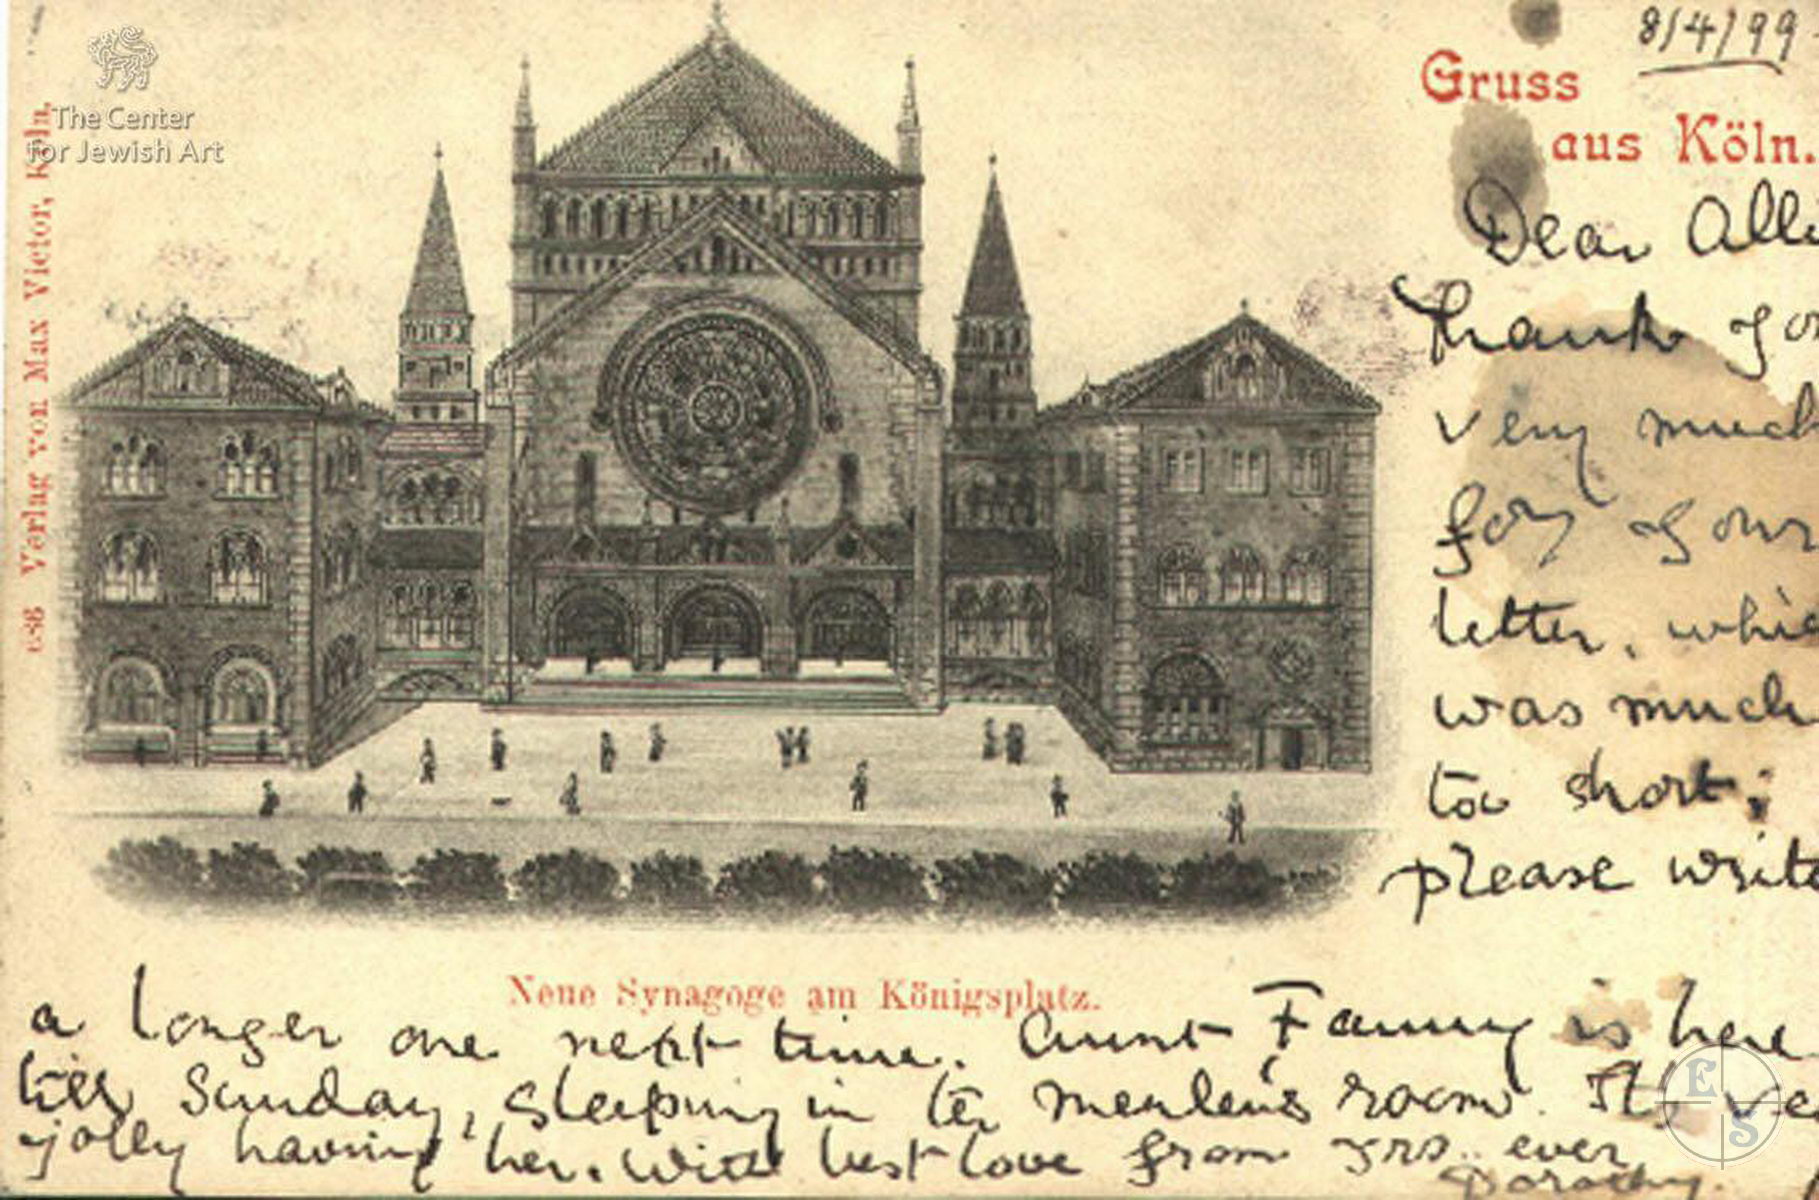 The Center
for Jewish Art
688 Verlag von Max Victor, Köln.
8/4/99
Gruss
aus Köln.
Dear
Thanks
very much
for your
letter, which
was much
too short;
please write
Neue Synagoge am Königsplatz.
a longer one next time. Aunt Fanny is here
till Sunday, sleeping in room. It's
jolly having her. With best love from yrs. ever
Dorothy.
E
S